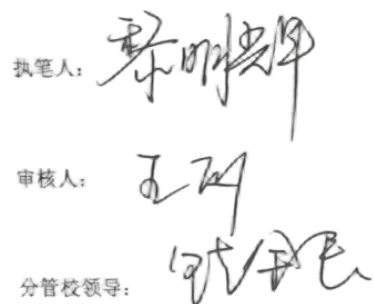 执笔人：黎明辉
审核人：王刚
分管校领导：